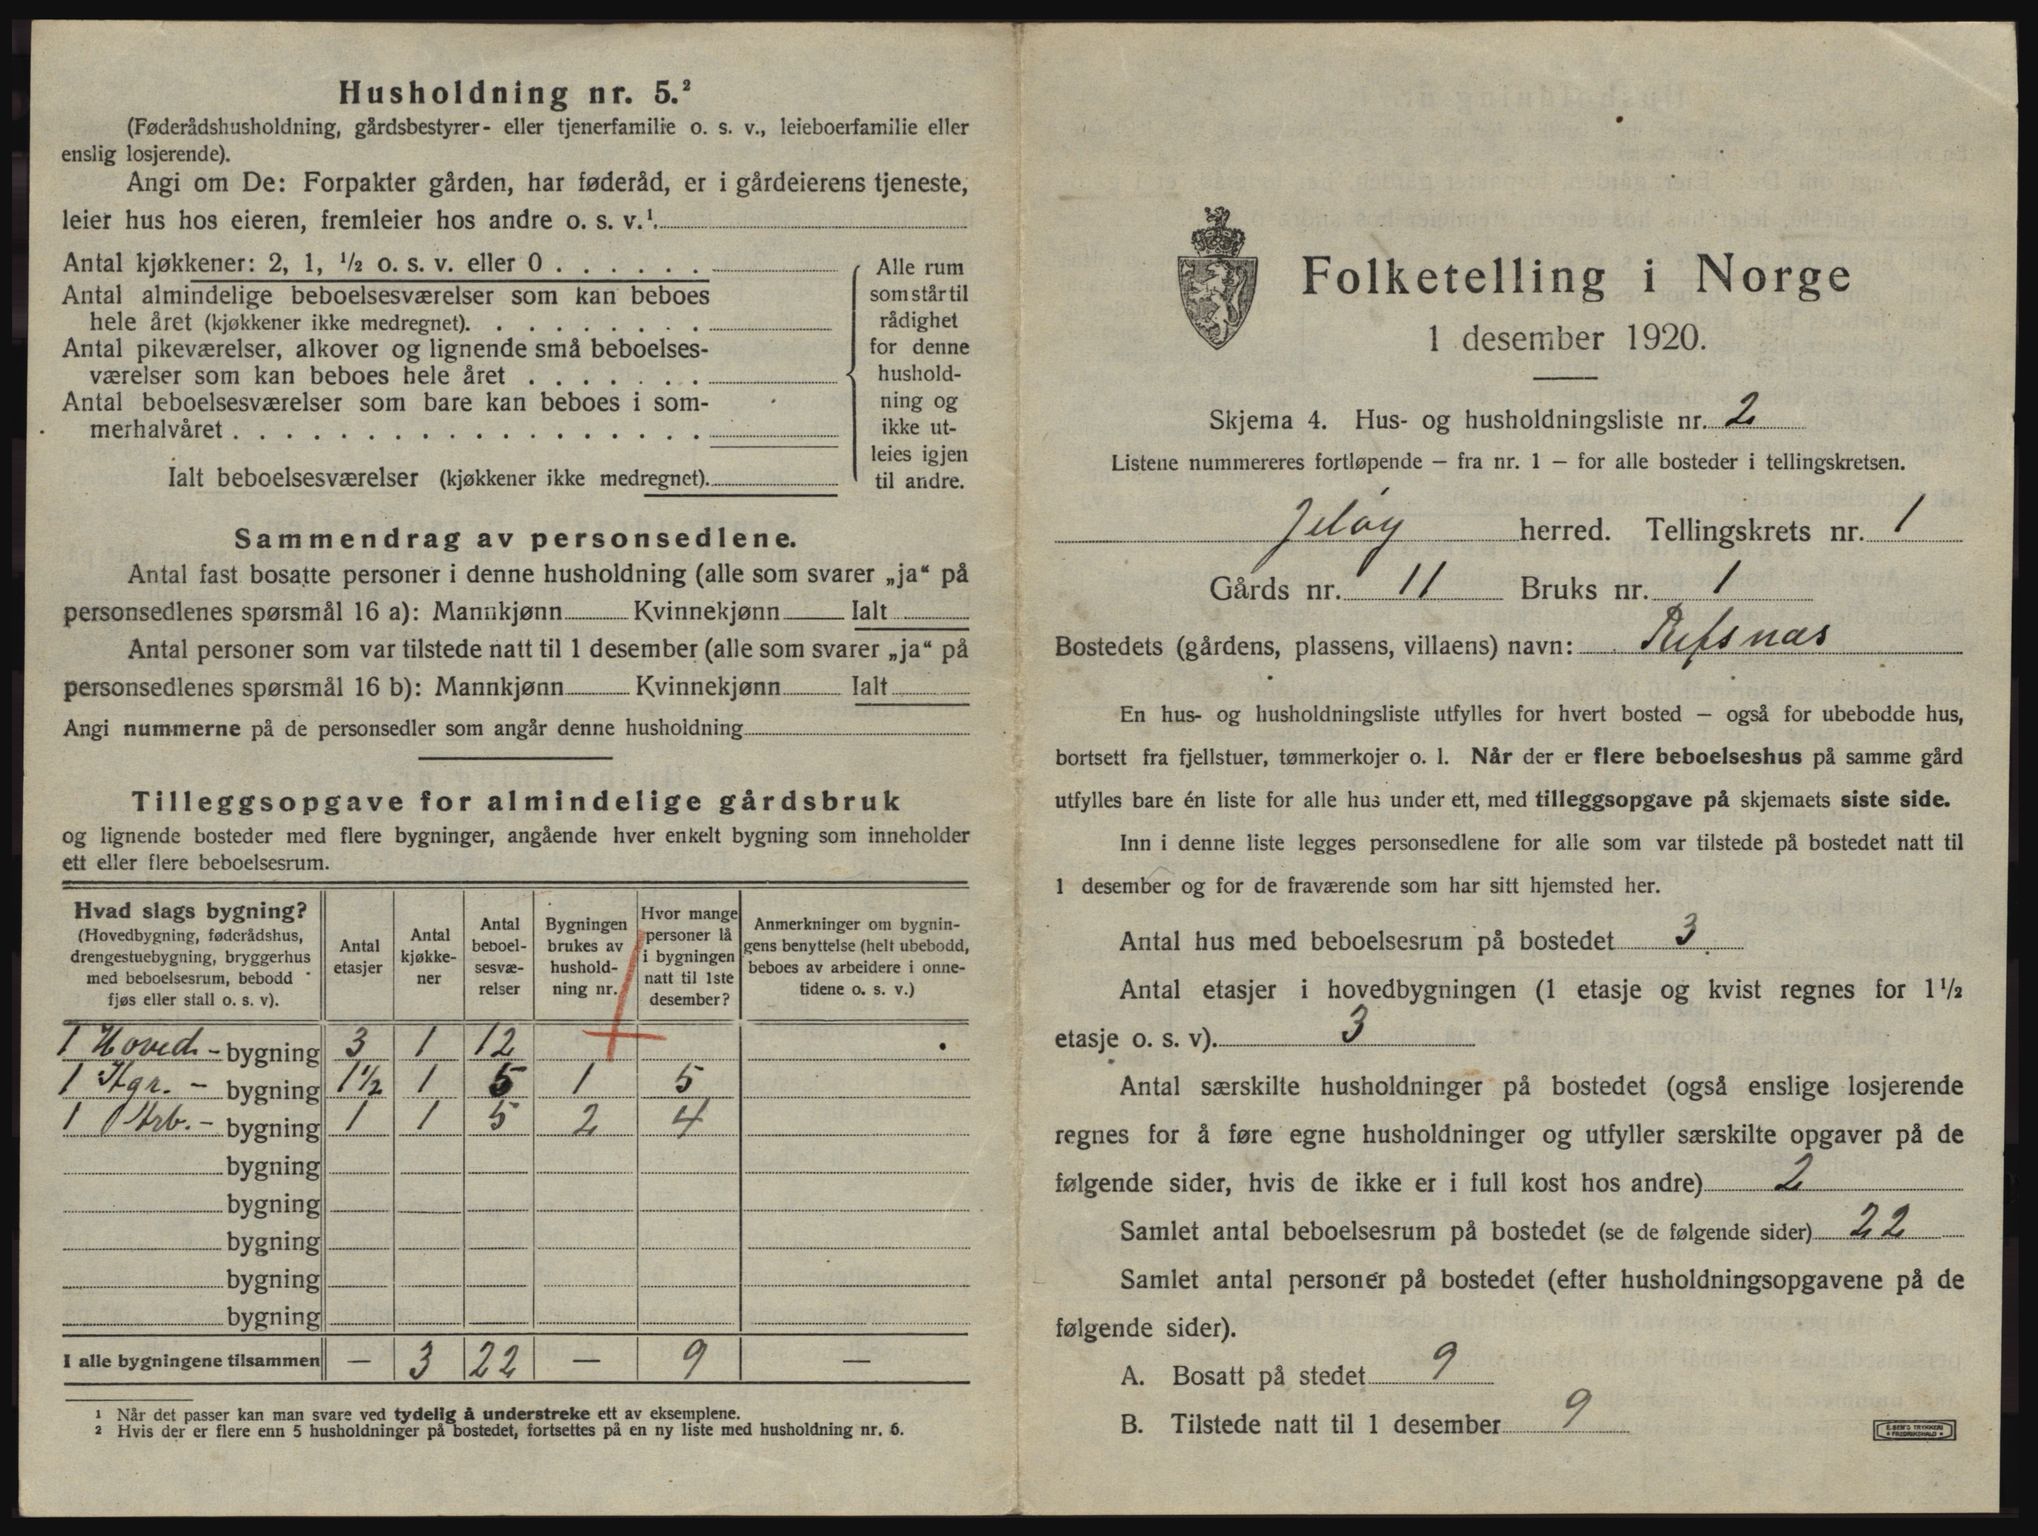 Husholdning nr. 5.²
(Føderådshusholdning, gårdsbestyrer- eller tjenerfamilie o. s. v., leieboerfamilie eller
enslig losjerende).
Angi om De: Forpakter gården, har føderåd, er i gårdeierens tjeneste,
leier hus hos eieren, fremleier hos andre o. s. v.¹.
Antal kjøkkener: 2, 1, ½ o. s. v. eller 0 . . . . . .
Antal almindelige beboelsesværelser som kan beboes
hele året (kjøkkener ikke medregnet). . . . . . . . .
Antal pikeværelser, alkover og lignende små beboelses-
værelser som kan beboes hele året . . . . . . .
Antal beboelsesværelser som bare kan beboes i som-
merhalvåret . . . . . . . . . . . . . . . . . .
Ialt beboelsesværelser (kjøkkener ikke medregnet).
Alle rum
som står til
rådighet
for denne
hushold-
ning og
ikke ut-
leies igjen
til andre.
Sammendrag av personsedlene.
Antal fast bosatte personer i denne husholdning (alle som svarer „ja“ på
personsedlenes spørsmål 16 a): Mannkjønn Kvinnekjønn Ialt
Antal personer som var tilstede natt til 1 desember (alle som svarer „ja“ på
personsedlenes spørsmål 16 b): Mannkjønn Kvinnekjønn Ialt
Angi nummerne på de personsedler som angår denne husholdning
Tilleggsopgave for almindelige gårdsbruk
og lignende bosteder med flere bygninger, angående hver enkelt bygning som inneholder
ett eller flere beboelsesrum.
Hvad slags bygning?
(Hovedbygning, føderådshus,
drengestuebygning, bryggerhus
med beboelsesrum, bebodd
fjøs eller stall o. s. v).
Antal
etasjer
Antal
kjøkke-
ner
Antal
beboel-
sesvæ-
relser
Bygningen
brukes av
hushold-
ning nr.
Hvor mange
personer lå
i bygningen
natt til 1ste
desember?
Anmerkninger om bygnin-
gens benyttelse (helt ubebodd,
beboes av arbeidere i onne-
tidene o. s. v.)
1 Hoved - bygning 3 1 12
1 Agr. - bygning 1½ 1 5 1 5
1 Arb. - bygning 1 1 5 2 4
bygning
bygning
bygning
bygning
bygning
I alle bygningene tilsammen — 3 22 — 9 —
¹ Når det passer kan man svare ved tydelig å understreke ett av eksemplene.
² Hvis der er flere enn 5 husholdninger på bostedet, fortsettes på en ny liste med husholdning nr. 6.
Folketelling i Norge
1 desember 1920.
Skjema 4. Hus- og husholdningsliste nr. 2
Listene nummereres fortløpende – fra nr. 1 – for alle bosteder i tellingskretsen.
Jeløy herred. Tellingskrets nr. 1
Gårds nr. 11 Bruks nr. 1
Bostedets (gårdens, plassens, villaens) navn: Refsnæs
En hus- og husholdningsliste utfylles for hvert bosted – også for ubebodde hus,
bortsett fra fjellstuer, tømmerkojer o. l. Når der er flere beboelseshus på samme gård
utfylles bare én liste for alle hus under ett, med tilleggsopgave på skjemaets siste side.
Inn i denne liste legges personsedlene for alle som var tilstede på bostedet natt til
1 desember og for de fraværende som har sitt hjemsted her.
Antal hus med beboelsesrum på bostedet 3
Antal etasjer i hovedbygningen (1 etasje og kvist regnes for 1½
etasje o. s. v). 3
Antal særskilte husholdninger på bostedet (også enslige losjerende
regnes for å føre egne husholdninger og utfyller særskilte opgaver på de
følgende sider, hvis de ikke er i full kost hos andre) 2
Samlet antal beboelsesrum på bostedet (se de følgende sider) 22
Samlet antal personer på bostedet (efter husholdningsopgavene på de
følgende sider).
A. Bosatt på stedet 9
B. Tilstede natt til 1 desember 9